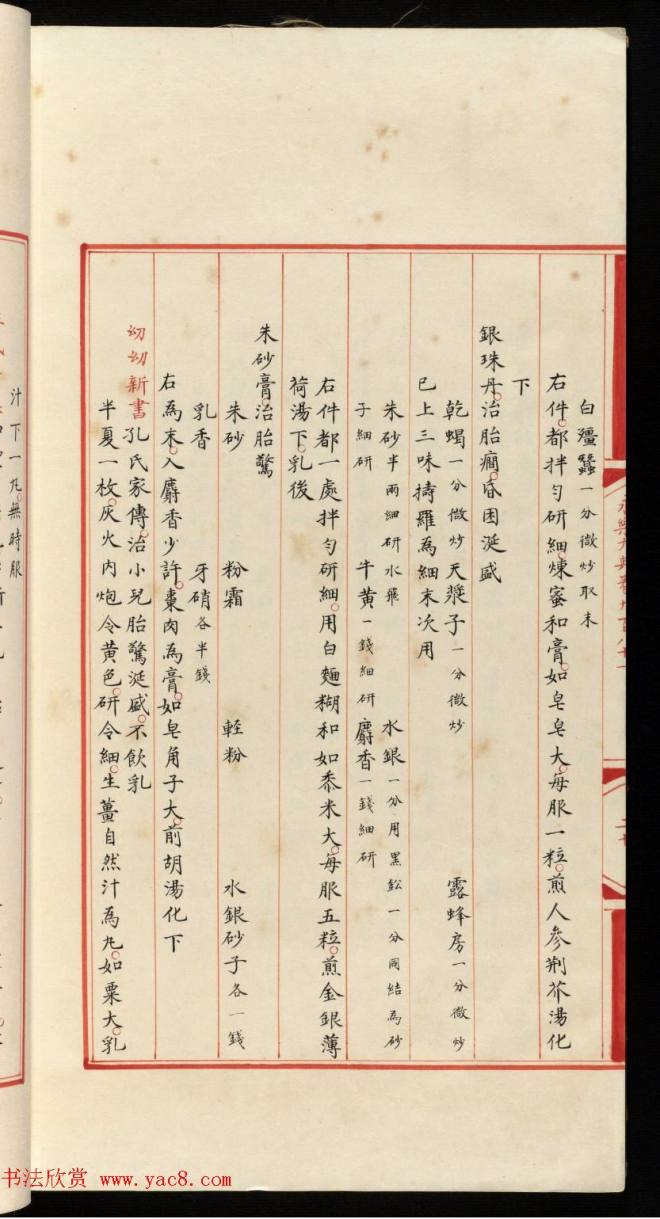 白殭蠶一分微炒取末
右件都拌勻研細煉蜜和膏如皂皂大每服一粒煎人參荆芥湯化
下
銀珠丹治胎癎昏困涎盛
乾蝎一分微炒 天漿子一分微炒 露蜂房一分微炒
已上三味擣羅為細末次用
朱砂半兩細研水飛 水銀一分用黑鉛一分同結為砂
子細研 牛黄一錢細研 麝香一錢細研
右件都一處拌勻研細用白麵糊和如黍米大每服五粒煎金銀薄
荷湯下乳後
朱砂膏治胎驚
朱砂 粉霜 輕粉 水銀砂子各一錢
乳香 牙硝各半錢
右為末入麝香少許棗肉為膏如皂角子大前胡湯化下
幼幼新書孔氏家傳治小兒胎驚涎盛不飲乳
半夏一枚灰火内炮令黄色研令細生薑自然汁為丸如粟大乳
汁下一丸無時服
书法欣赏 www.yac8.com